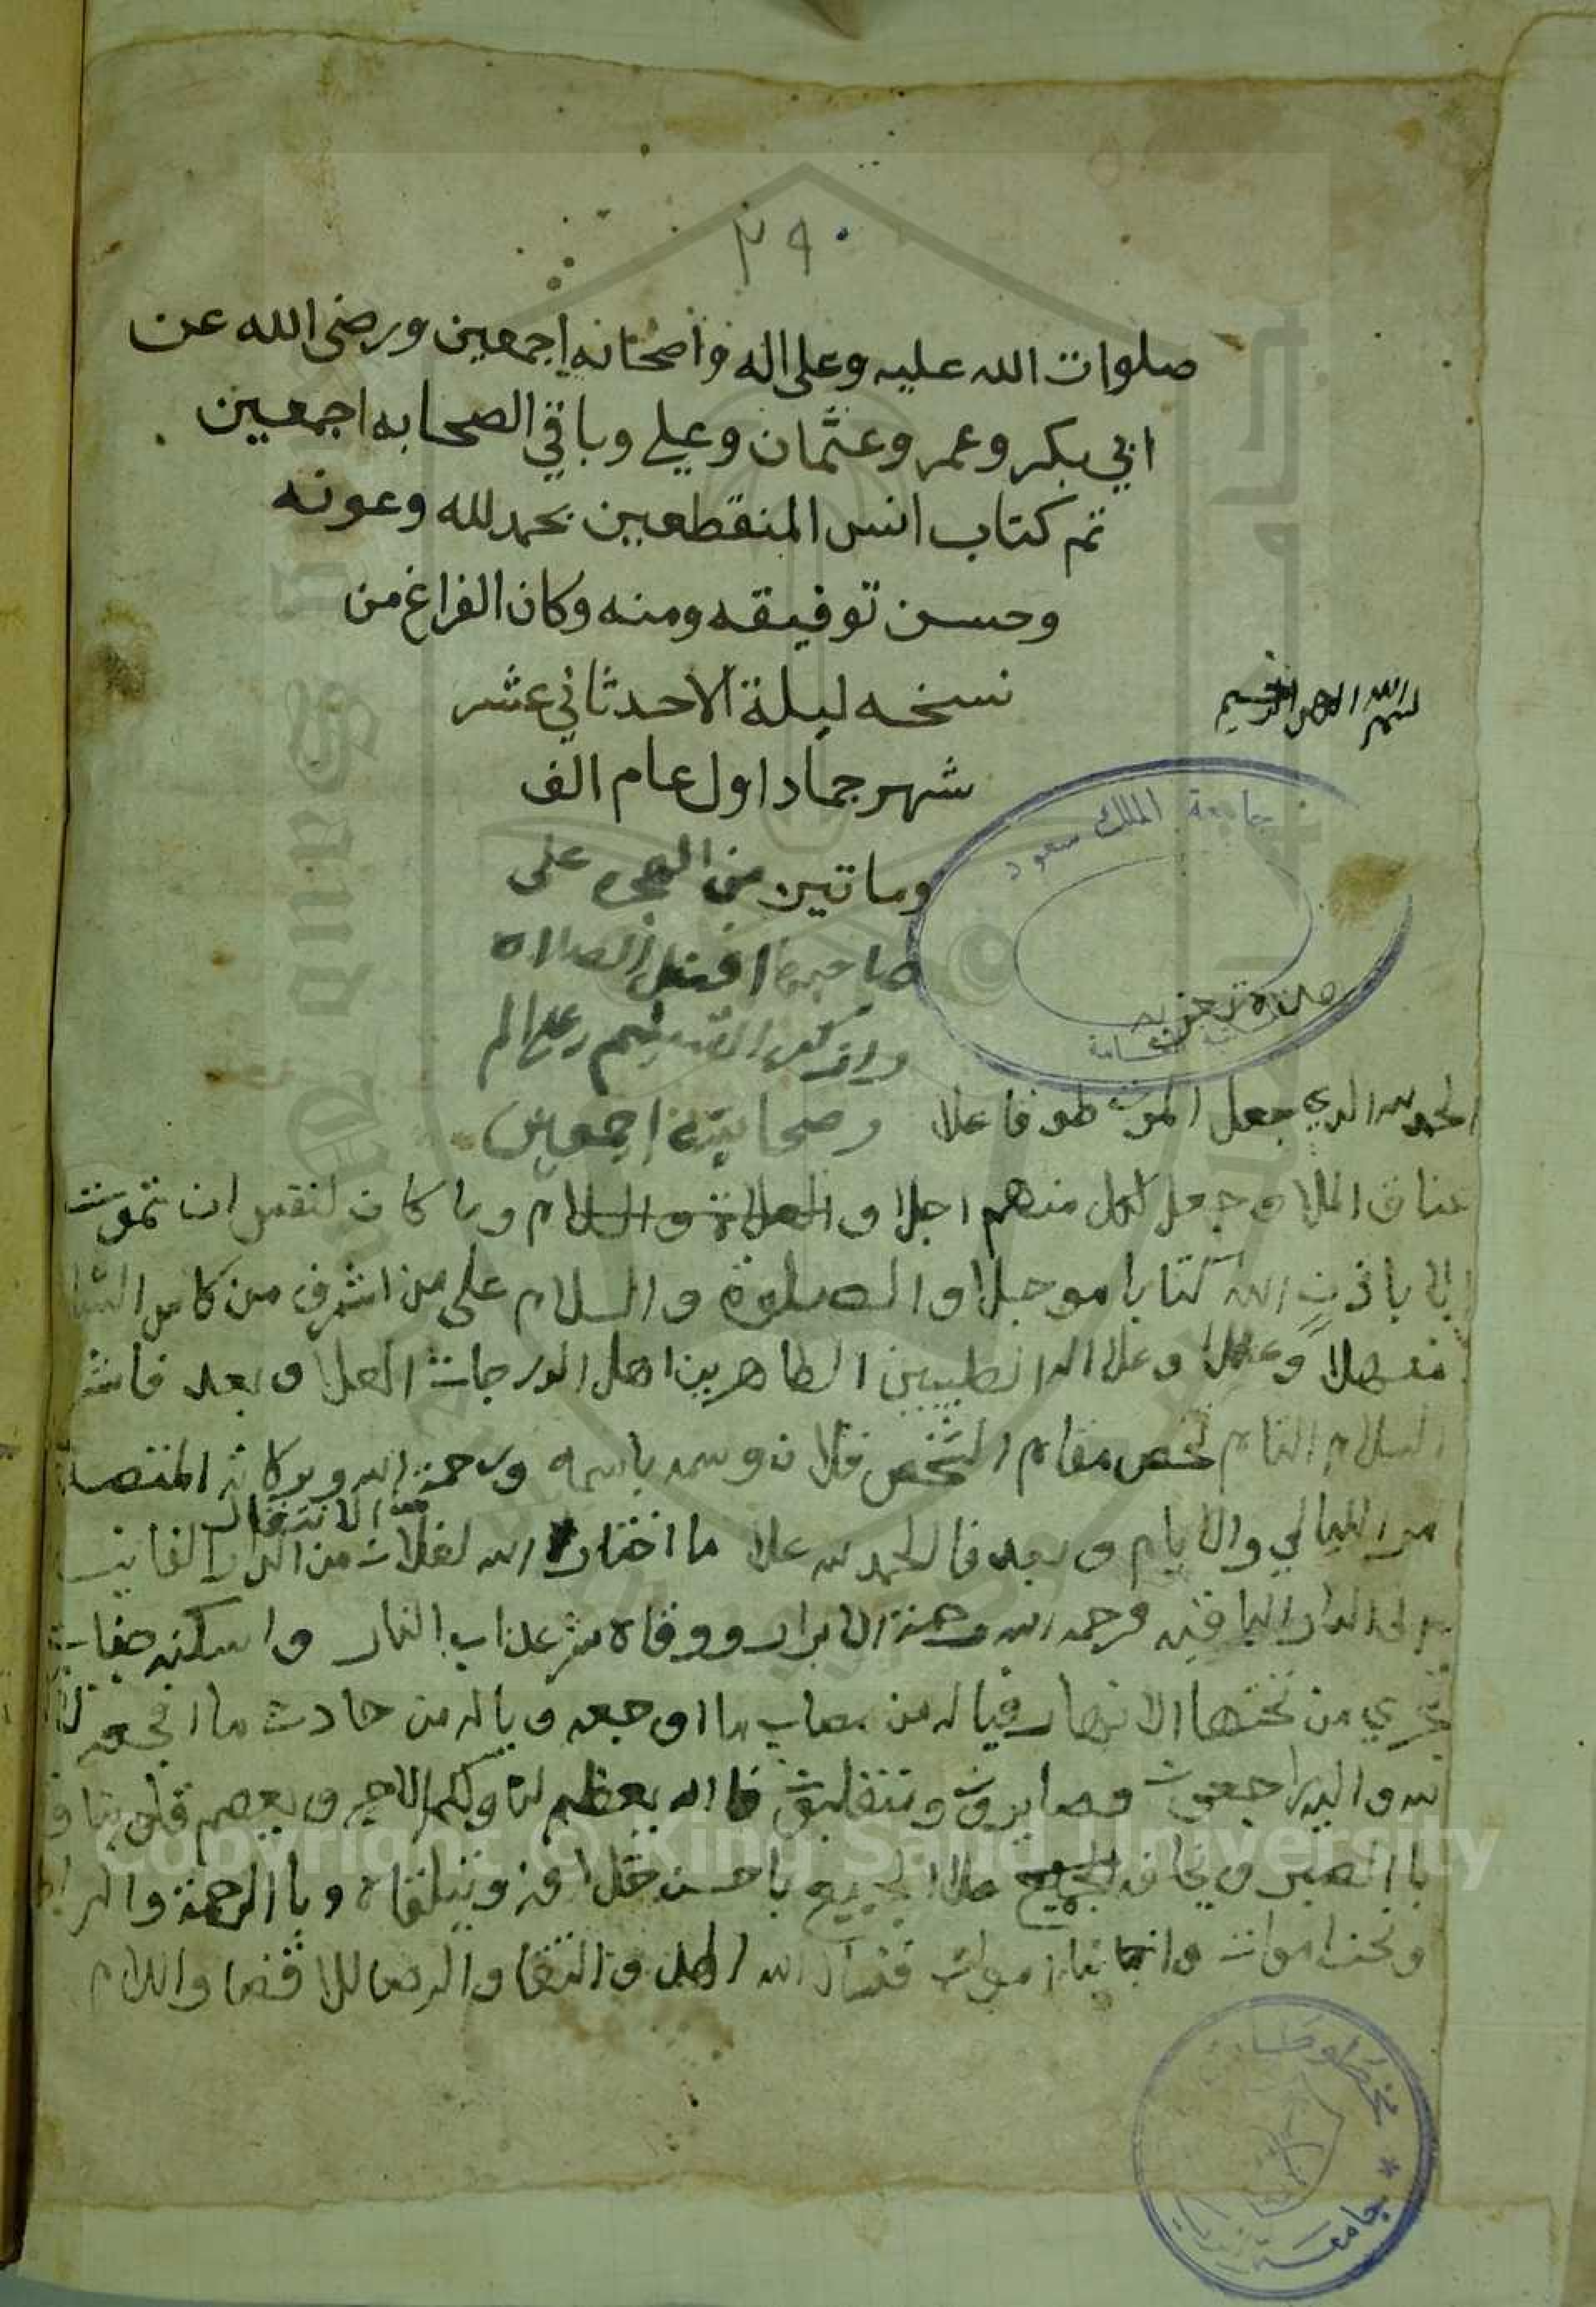 ٢٩٠
صلوات الله عليه وعلى اله واصحابه اجمعين ورضى الله عن
ابي بكر وعمر وعثمان وعلي وباقي الصحابه اجمعين
تم كتاب انس المنقطعين بحمد لله وعونه
وحسن توفيقه ومنه وكان الفراغ من
نسخه ليلة الاحد ثاني عشر
شهر جماد اول عام الف
وماتين من الهجره على
صاحبها افضل الصلاه
وازكى التسليم وعلى اله
وصحابته اجمعين
بسم الله الرحمن الرحيم
جامعة الملك سعود
هذه تعزيه
الحمد لله الذي جعل الموت طوقا علا
عناق الملا وجعل لكل منهم اجلا والصلاة والسلام وما كان لنفس ان تموت
الا باذن الله كتابا موجلا والصلوة والسلام على من اشرف من كاس
منهلا وعلا وعلا اله الطيبين الطاهرين اهل الدرجات العلا وبعد فان
السلام التام يخص مقام الشخص فلان وسمه باسمه ورحمة الله وبركاته
مر الليالي والايام وبعد فالحمد لله علا ما اختار الله لفلان من الدار الفانيه
الانتقال
الدار الباقيه فرحمه الله رحمة الابرار ووقاه شر عذاب النار واسكنه جنات
تجري من تحتها الانهار فياله من مصاب ما اوجعه وياله من حادث ما افجعه
لله واليه راجعون وصابرون فالله يعظم لنا ولكم الاجر ويعصم قلوبنا
باالصبر ويخلفه الجميع علا الجميع باحسن خلافه ويتلقاه باالرحمة
ونحن اموات وابنا اموات فنسال الله والتقا والرضا للاقضا والسلام
مخطوطات
جامعة
Copyright © King Saud University